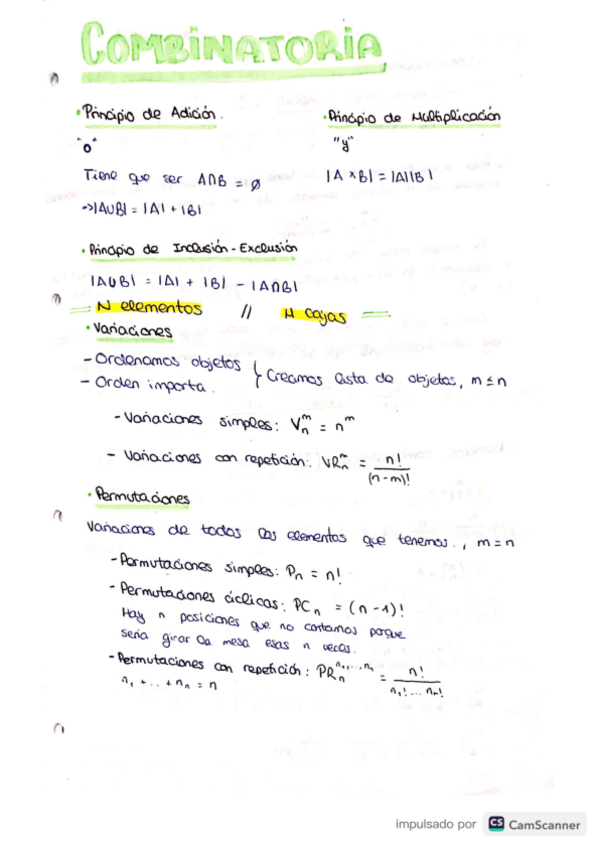 COMBINATORIA
• Principio de Adición.
"o"
Tiene que ser A∩B = ∅
->|A∪B| = |A| + |B|
• Principio de Multiplicación
"y"
|A × B| = |A||B|
• Principio de Inclusión - Exclusión
|A∪B| = |A| + |B| - |A∩B|
= N elementos // N cajas =
• Variaciones
- Ordenamos objetos
- Orden importa.
} Creamos lista de objetos, m ≤ n
- Variaciones simples: V_n^m = n^m
- Variaciones con repetición: VR_n^m = n! / (n-m)!
• Permutaciones
Variaciones de todos los elementos que tenemos., m = n
- Permutaciones simples: P_n = n!
- Permutaciones cíclicas: PC_n = (n - 1)!
Hay n posiciones que no contamos porque
sería girar la mesa esas n veces.
- Permutaciones con repetición: PR_n^{n_1,...,n_n} = n! / n_1! ... n_n!
n_1 + ... + n_n = n
impulsado por CS CamScanner